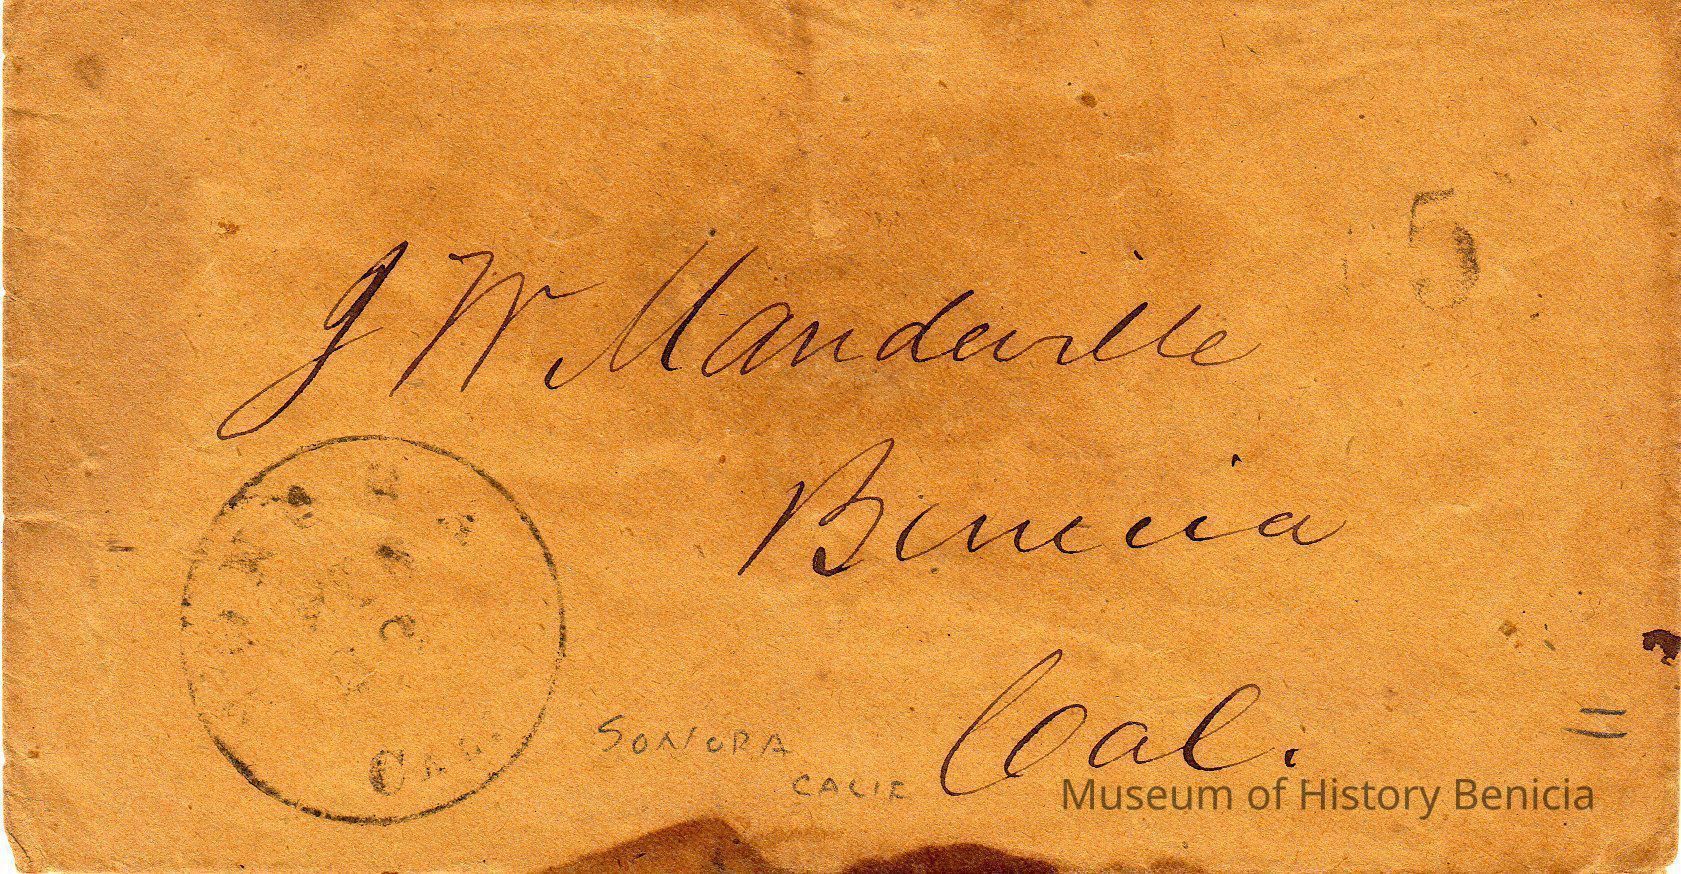 5
J W Mandeville
Benicia
Cal.
CAL.
SONORA
CALIF
Museum of History Benicia